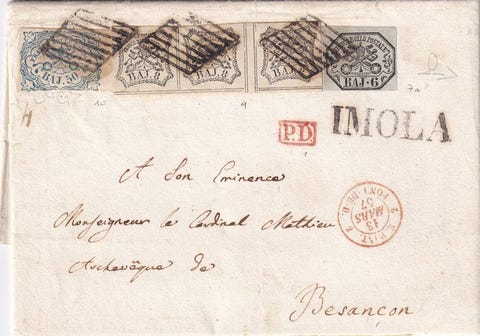 BAJ. 50
BAJ. 8
BAJ. 8
BAJ. 8
BOLLO POSTALE
BAJ-6
10
9
7a
P.D.
IMOLA
A Son Eminence
Monseigneur le Cardinal Mathieu
Archevêque de
Besançon
13
MARS
57
PONT-DE-B.